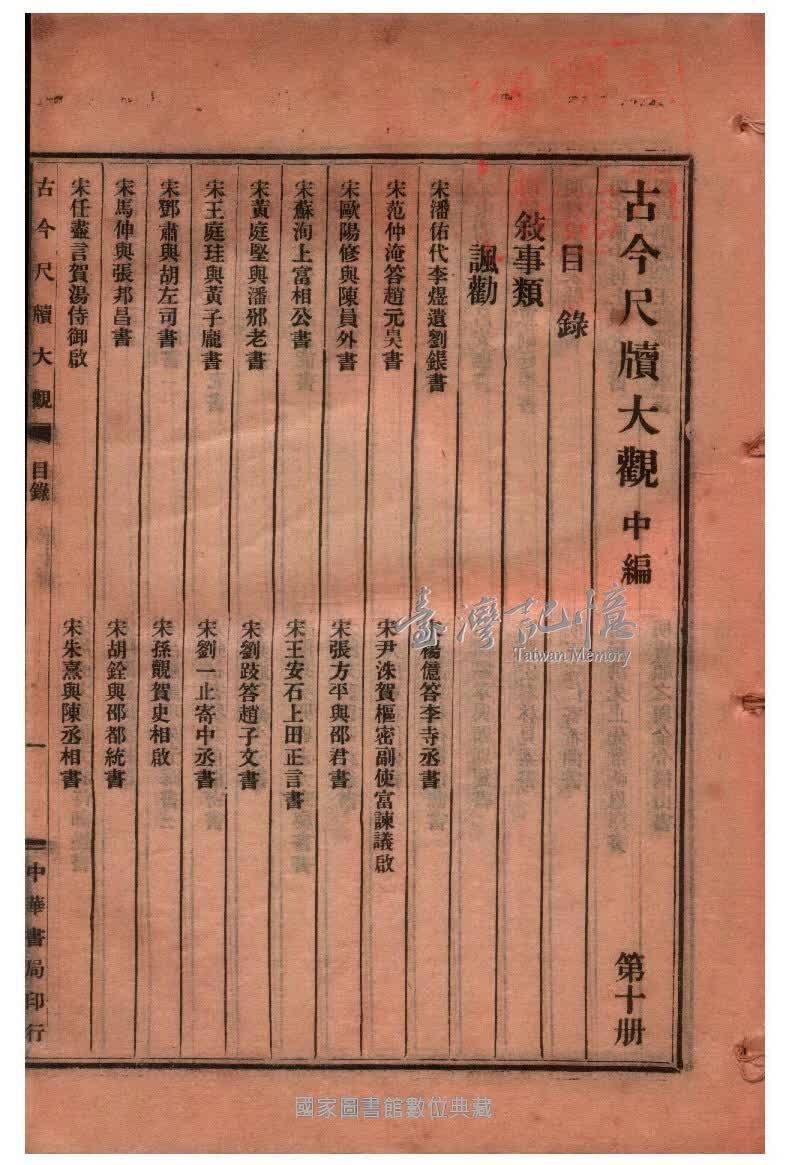 古今尺牘大觀 中編 第十册
目錄
敍事類
諷勸
宋潘佑代李煜遺劉鋹書 宋楊億答李寺丞書
宋范仲淹答趙元昊書 宋尹洙賀樞密副使富諫議啟
宋歐陽修與陳員外書 宋張方平與邵君書
宋蘇洵上富相公書 宋王安石上田正言書
宋黃庭堅與潘邠老書 宋劉跂答趙子文書
宋王庭珪與黃子龐書 宋劉一止寄中丞書
宋鄧肅與胡左司書 宋孫覿賀史相啟
宋馬伸與張邦昌書 宋胡銓與邵都統書
宋任盡言賀湯侍御啟 宋朱熹與陳丞相書
古今尺牘大觀 目錄 一 中華書局印行
臺灣記憶
Taiwan Memory
國家圖書館數位典藏